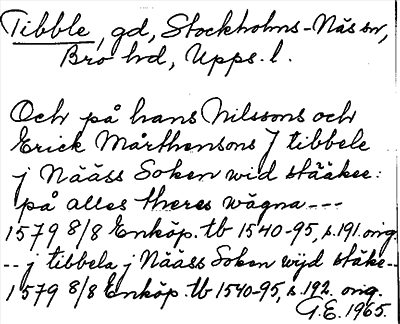 Tibble, gd, Stockholms-Näs sn,
Bro hd, Upps. l.
Och på hans Nilssons och
Erick Mårthensons J tibbele
j Nääss Soken wid stääkee:
på alles theres wägna ---
1579 8/8 Enköp. tb 1540-95, s. 191. orig.
-- j tibbela j Nääss Soken wijd stäke--
1579 8/8 Enköp. tb 1540-95, s. 192. orig.
G.E. 1965.